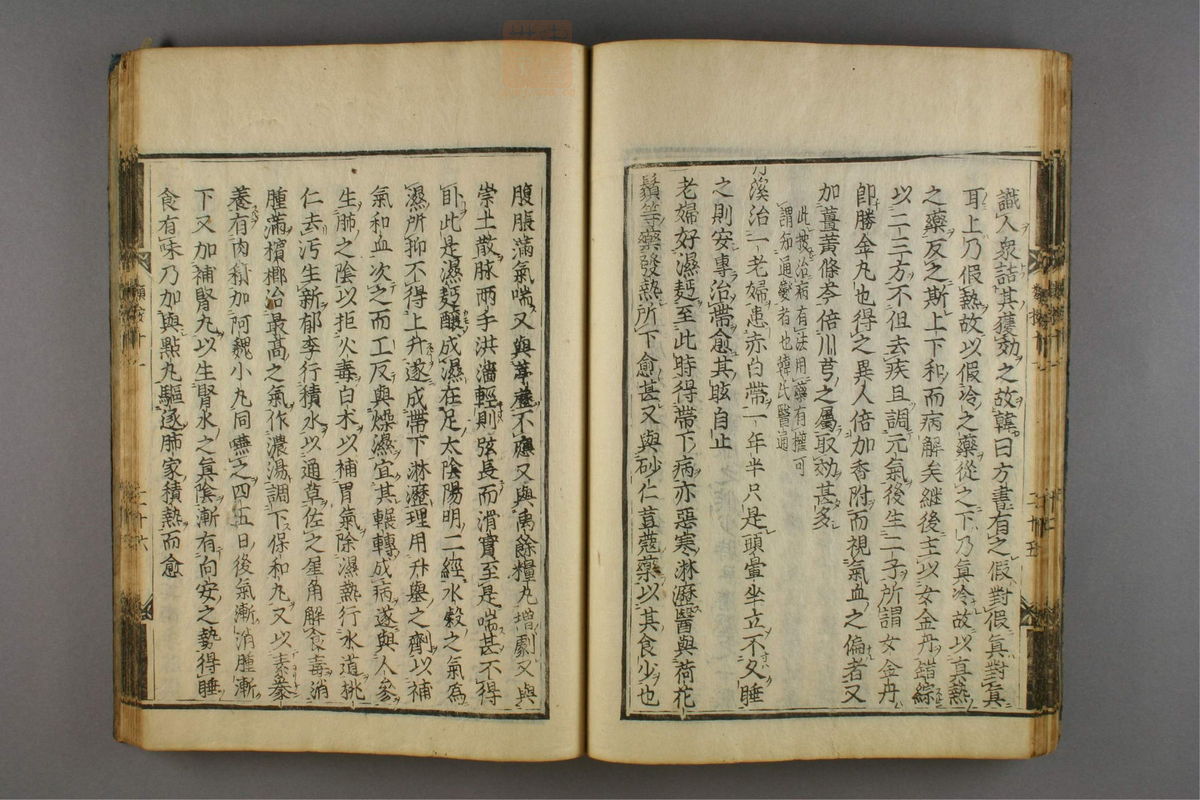 識人衆詰其獲効之故韓曰方書有之假對假真對真
耳上乃假熱故以假冷之藥從之下乃真冷故以真熱
之藥反之斯上下和而病解矣継後主以女金丹錯綜
以二三方不但去疾且調元氣後生二子所謂女金丹
即勝金丸也得之異人倍加香附而視氣血之偏者又
加薑黄條芩倍川芎之屬取効甚多
此披治病有法用藥有權可
謂知通變者也韓氏醫通
丹溪治一老婦患赤白帶一年半只是頭暈坐立不久睡
之則安專治帶愈其眩自止
老婦好濕麪至此時得帶下病亦惡寒淋瀝醫與荷花
鬚等藥發熱所下愈甚又與砂仁荳蔻藥以其食少也
腹脹滿氣喘又與葶藶不應又與禹餘糧丸増劇又與
崇土散脉兩手洪濇輕則弦長而滑實至是喘甚不得
卧此是濕麪釀成濕在足太陰陽明二經水穀之氣為
濕所抑不得上升遂成帶下淋瀝理用升舉之劑以補
氣和血次之而工反與燥濕宜其輾轉成病遂與人參
生肺之陰以拒火毒白术以補胃氣除濕熱行水道桃
仁去污生新郁李行積水以通草佐之犀角解食毒消
腫滿檳榔治最高之氣作濃湯調下保和丸又以素豢
養有肉積加阿魏小丸同嚥之四五日後氣漸消腫漸
下又加補腎丸以生腎水之真陰漸有向安之勢得睡
食有味乃加與點丸驅逐肺家積熱而愈